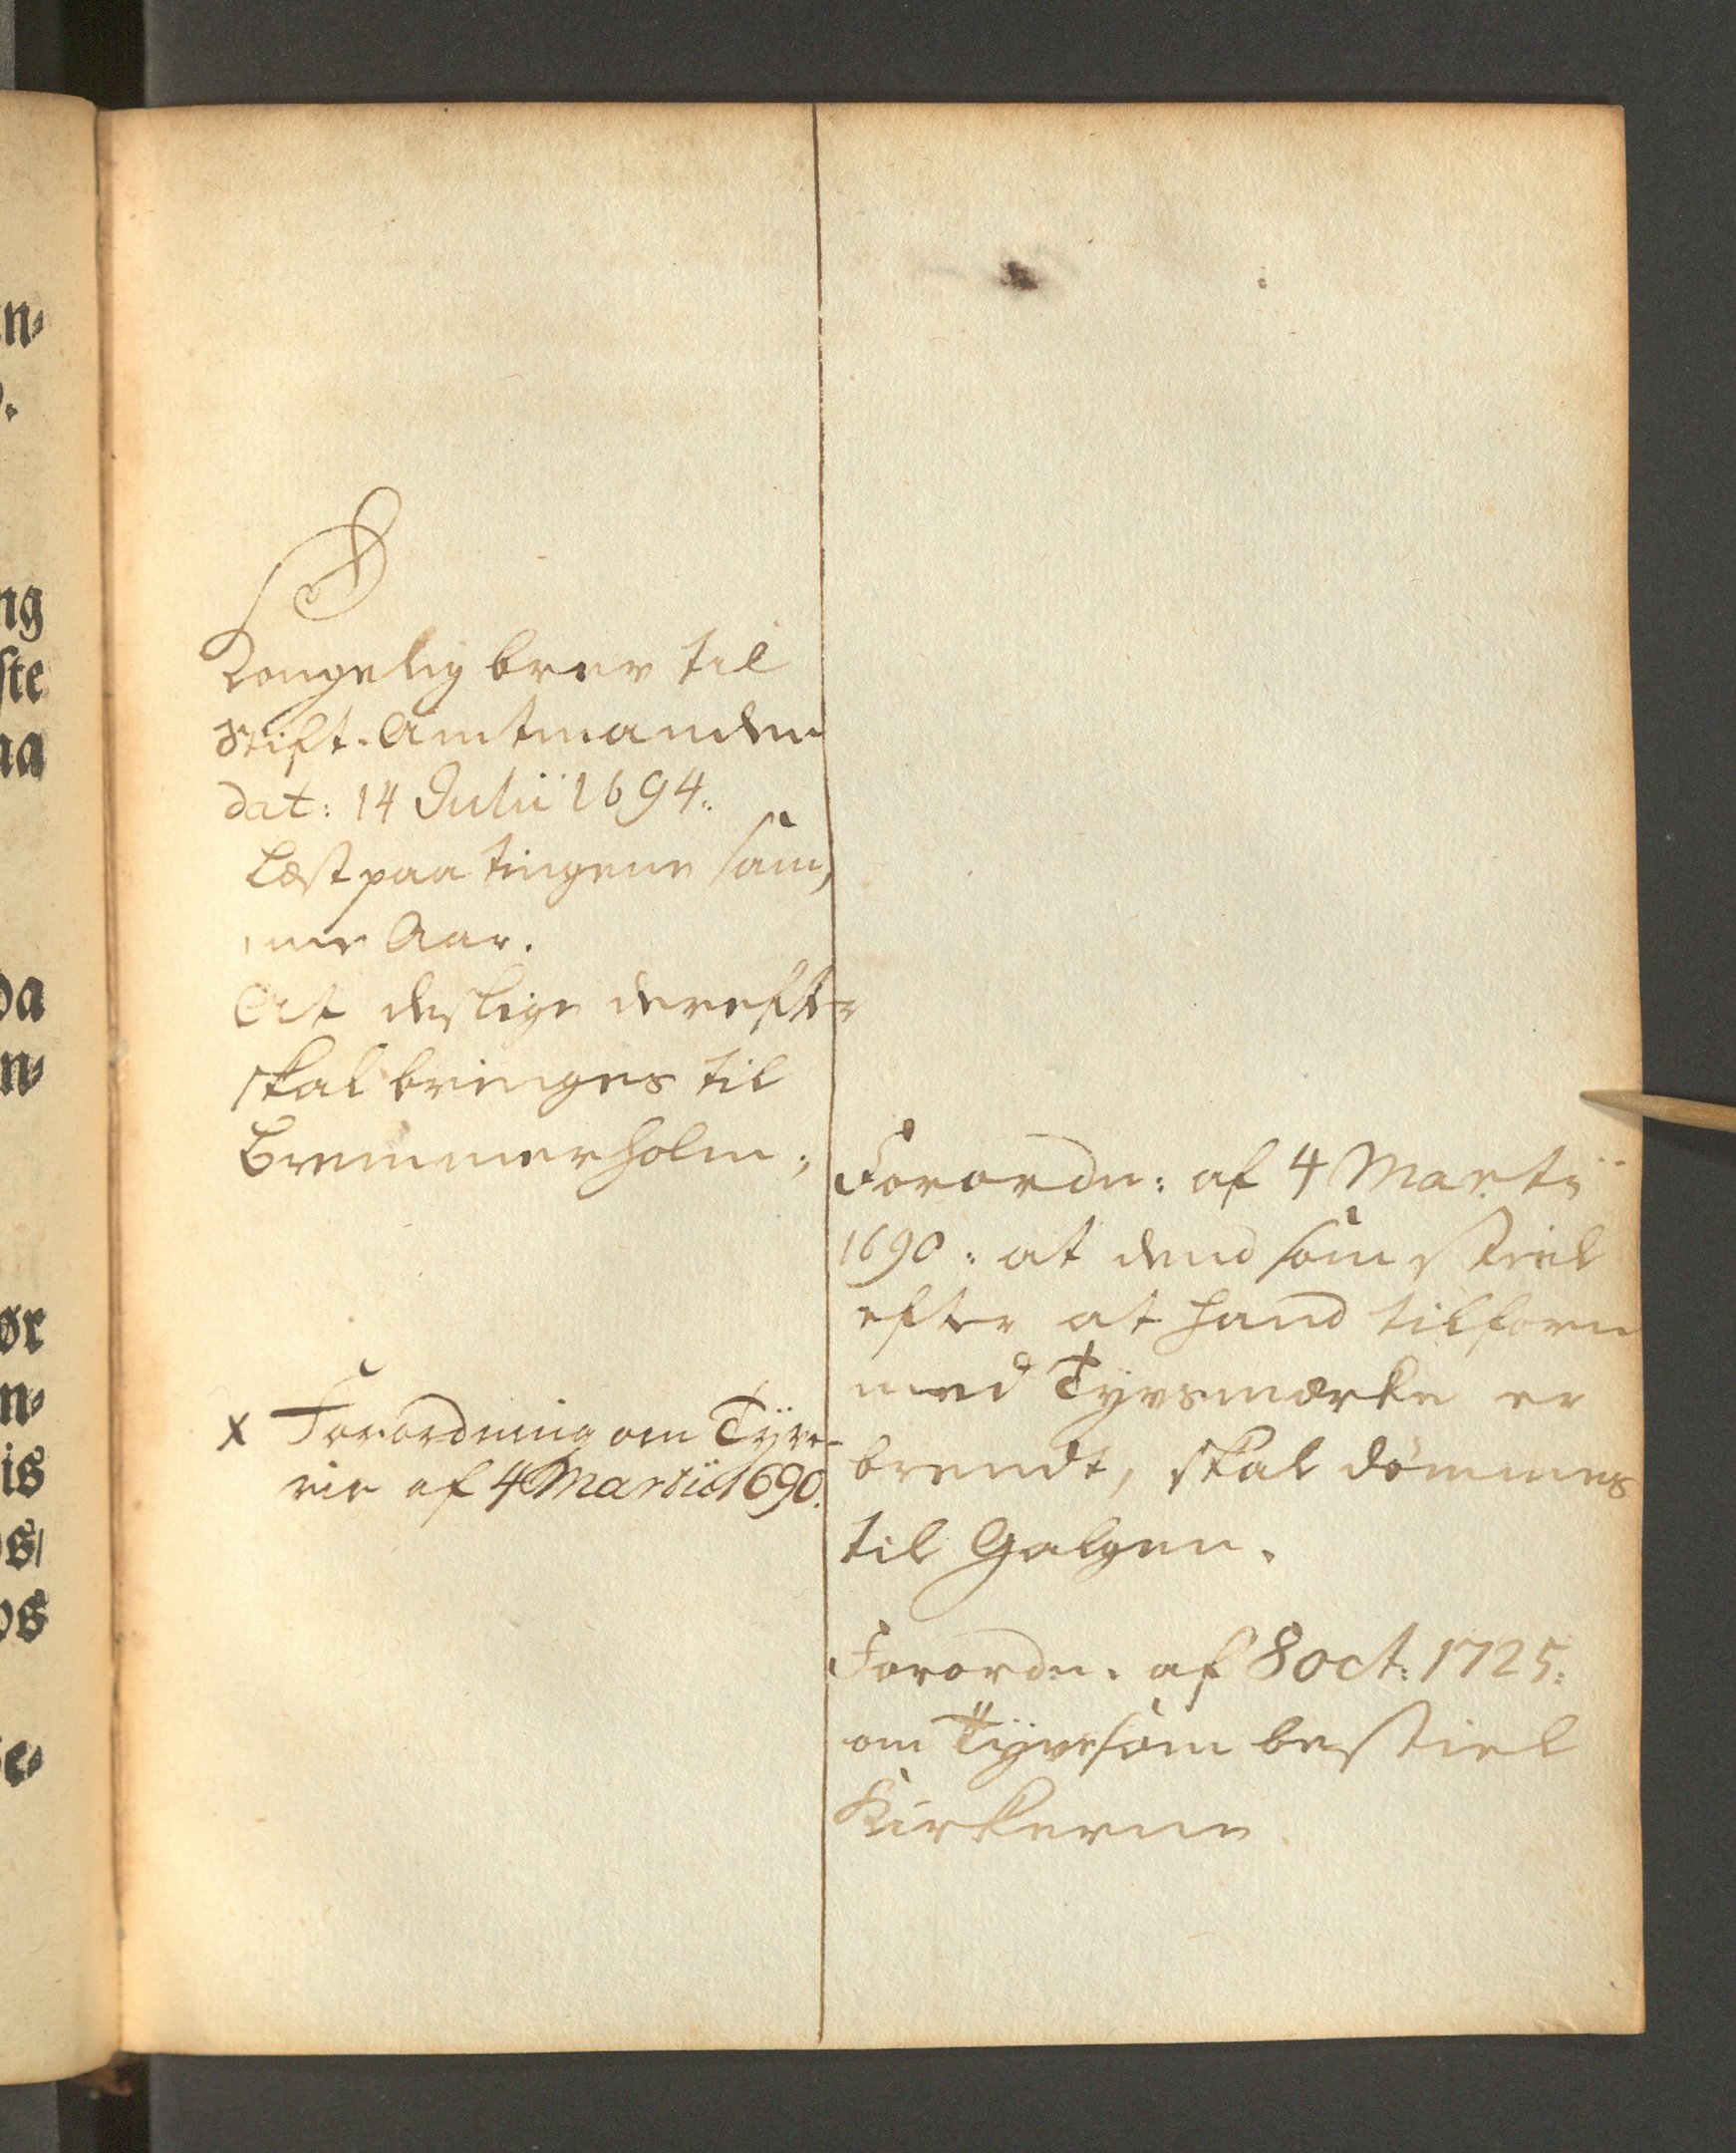 Kongelig brev til
Stift-Amtmanden
dat: 14 Julii 1694.
Læst paa tingene sam,
me Aar.
At deslige derefter
skal bringes til
Bremmerholm;
x Forordning om Tyve-
rie af 4 Martii 1690.
Forordn: af 4 Martii
1690: at dend som stiel
efter at hand tilforn
med Tyvsmærke er
brendt, skal dömmes
til Galgen.
Forordn. af 8 oct: 1725:
om Tyve som bestiel
Kirkerne
n-
ng
ste
aa
da
n-
ør
n-
is
s/
os
e-